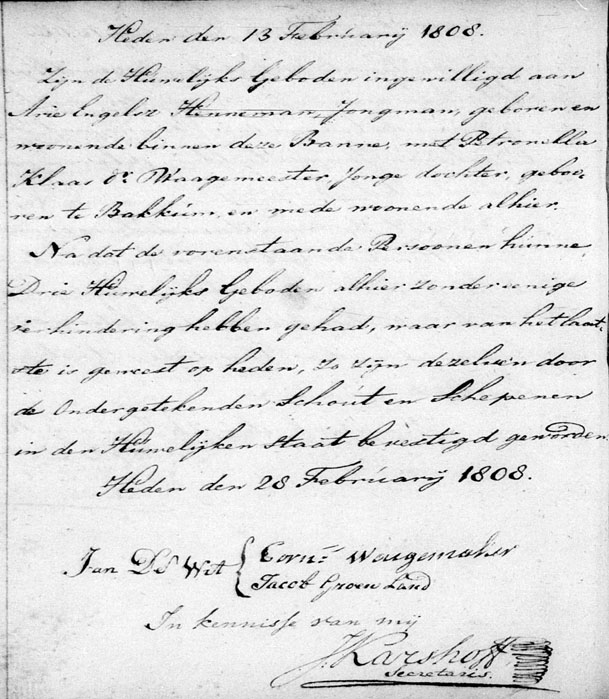 Heden den 13 Februarij 1808.
Zijn de Huwelijks Geboden ingewilligd aan
Arie Engelsz Henneman, Jongman, geboren en
woonende binnen deze Banne, met Petronella
Klaas dr. Waagemeester, Jonge dochter, geboo,
ren te Bakkum, en mede woonende alhier.
Na dat de vorenstaande Persoonen hunne
Drie Huwelijks Geboden alhier zonder eenige
verhindering hebben gehad, waar van het laat,
ste is geweest op heden, zo zijn dezelven door
de Ondergetekenden Schout en Schepenen
in den Huwelijken staat bevestigd geworden.
Heden den 28 Februarij 1808.
Jan DS Wit { Corns. Waagemaker
Jacob Groen Land
In kennisse van mij
Karshoff
Secretaris.